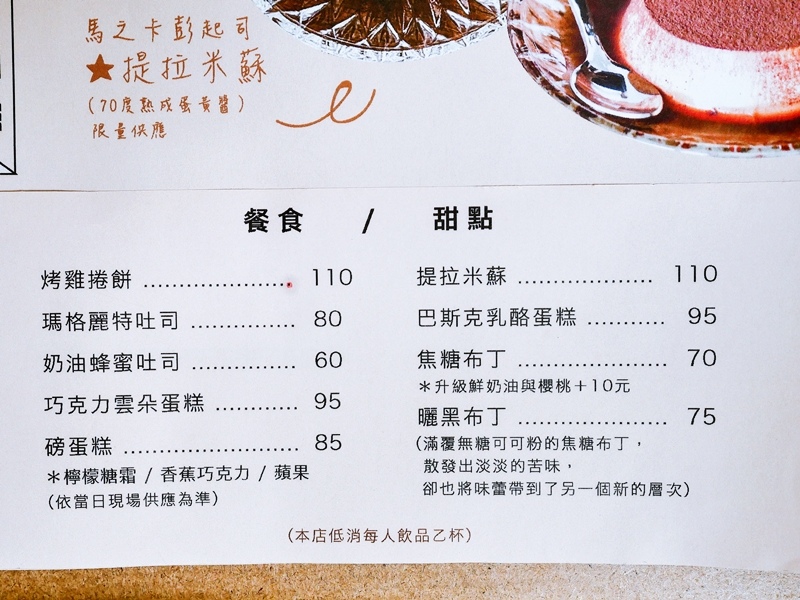 馬之卡彭起司
★提拉米蘇
(70度熟成蛋黃醬)
限量供應
餐食 / 甜點
烤雞捲餅 ..................... 110
瑪格麗特吐司 ............... 80
奶油蜂蜜吐司 ............... 60
巧克力雲朵蛋糕 ............ 95
磅蛋糕 ......................... 85
＊檸檬糖霜 / 香蕉巧克力 / 蘋果
(依當日現場供應為準)
提拉米蘇 ................... 110
巴斯克乳酪蛋糕 ........... 95
焦糖布丁 ..................... 70
＊升級鮮奶油與櫻桃＋10元
曬黑布丁 ..................... 75
(滿覆無糖可可粉的焦糖布丁，
散發出淡淡的苦味，
卻也將味蕾帶到了另一個新的層次)
(本店低消每人飲品乙杯)